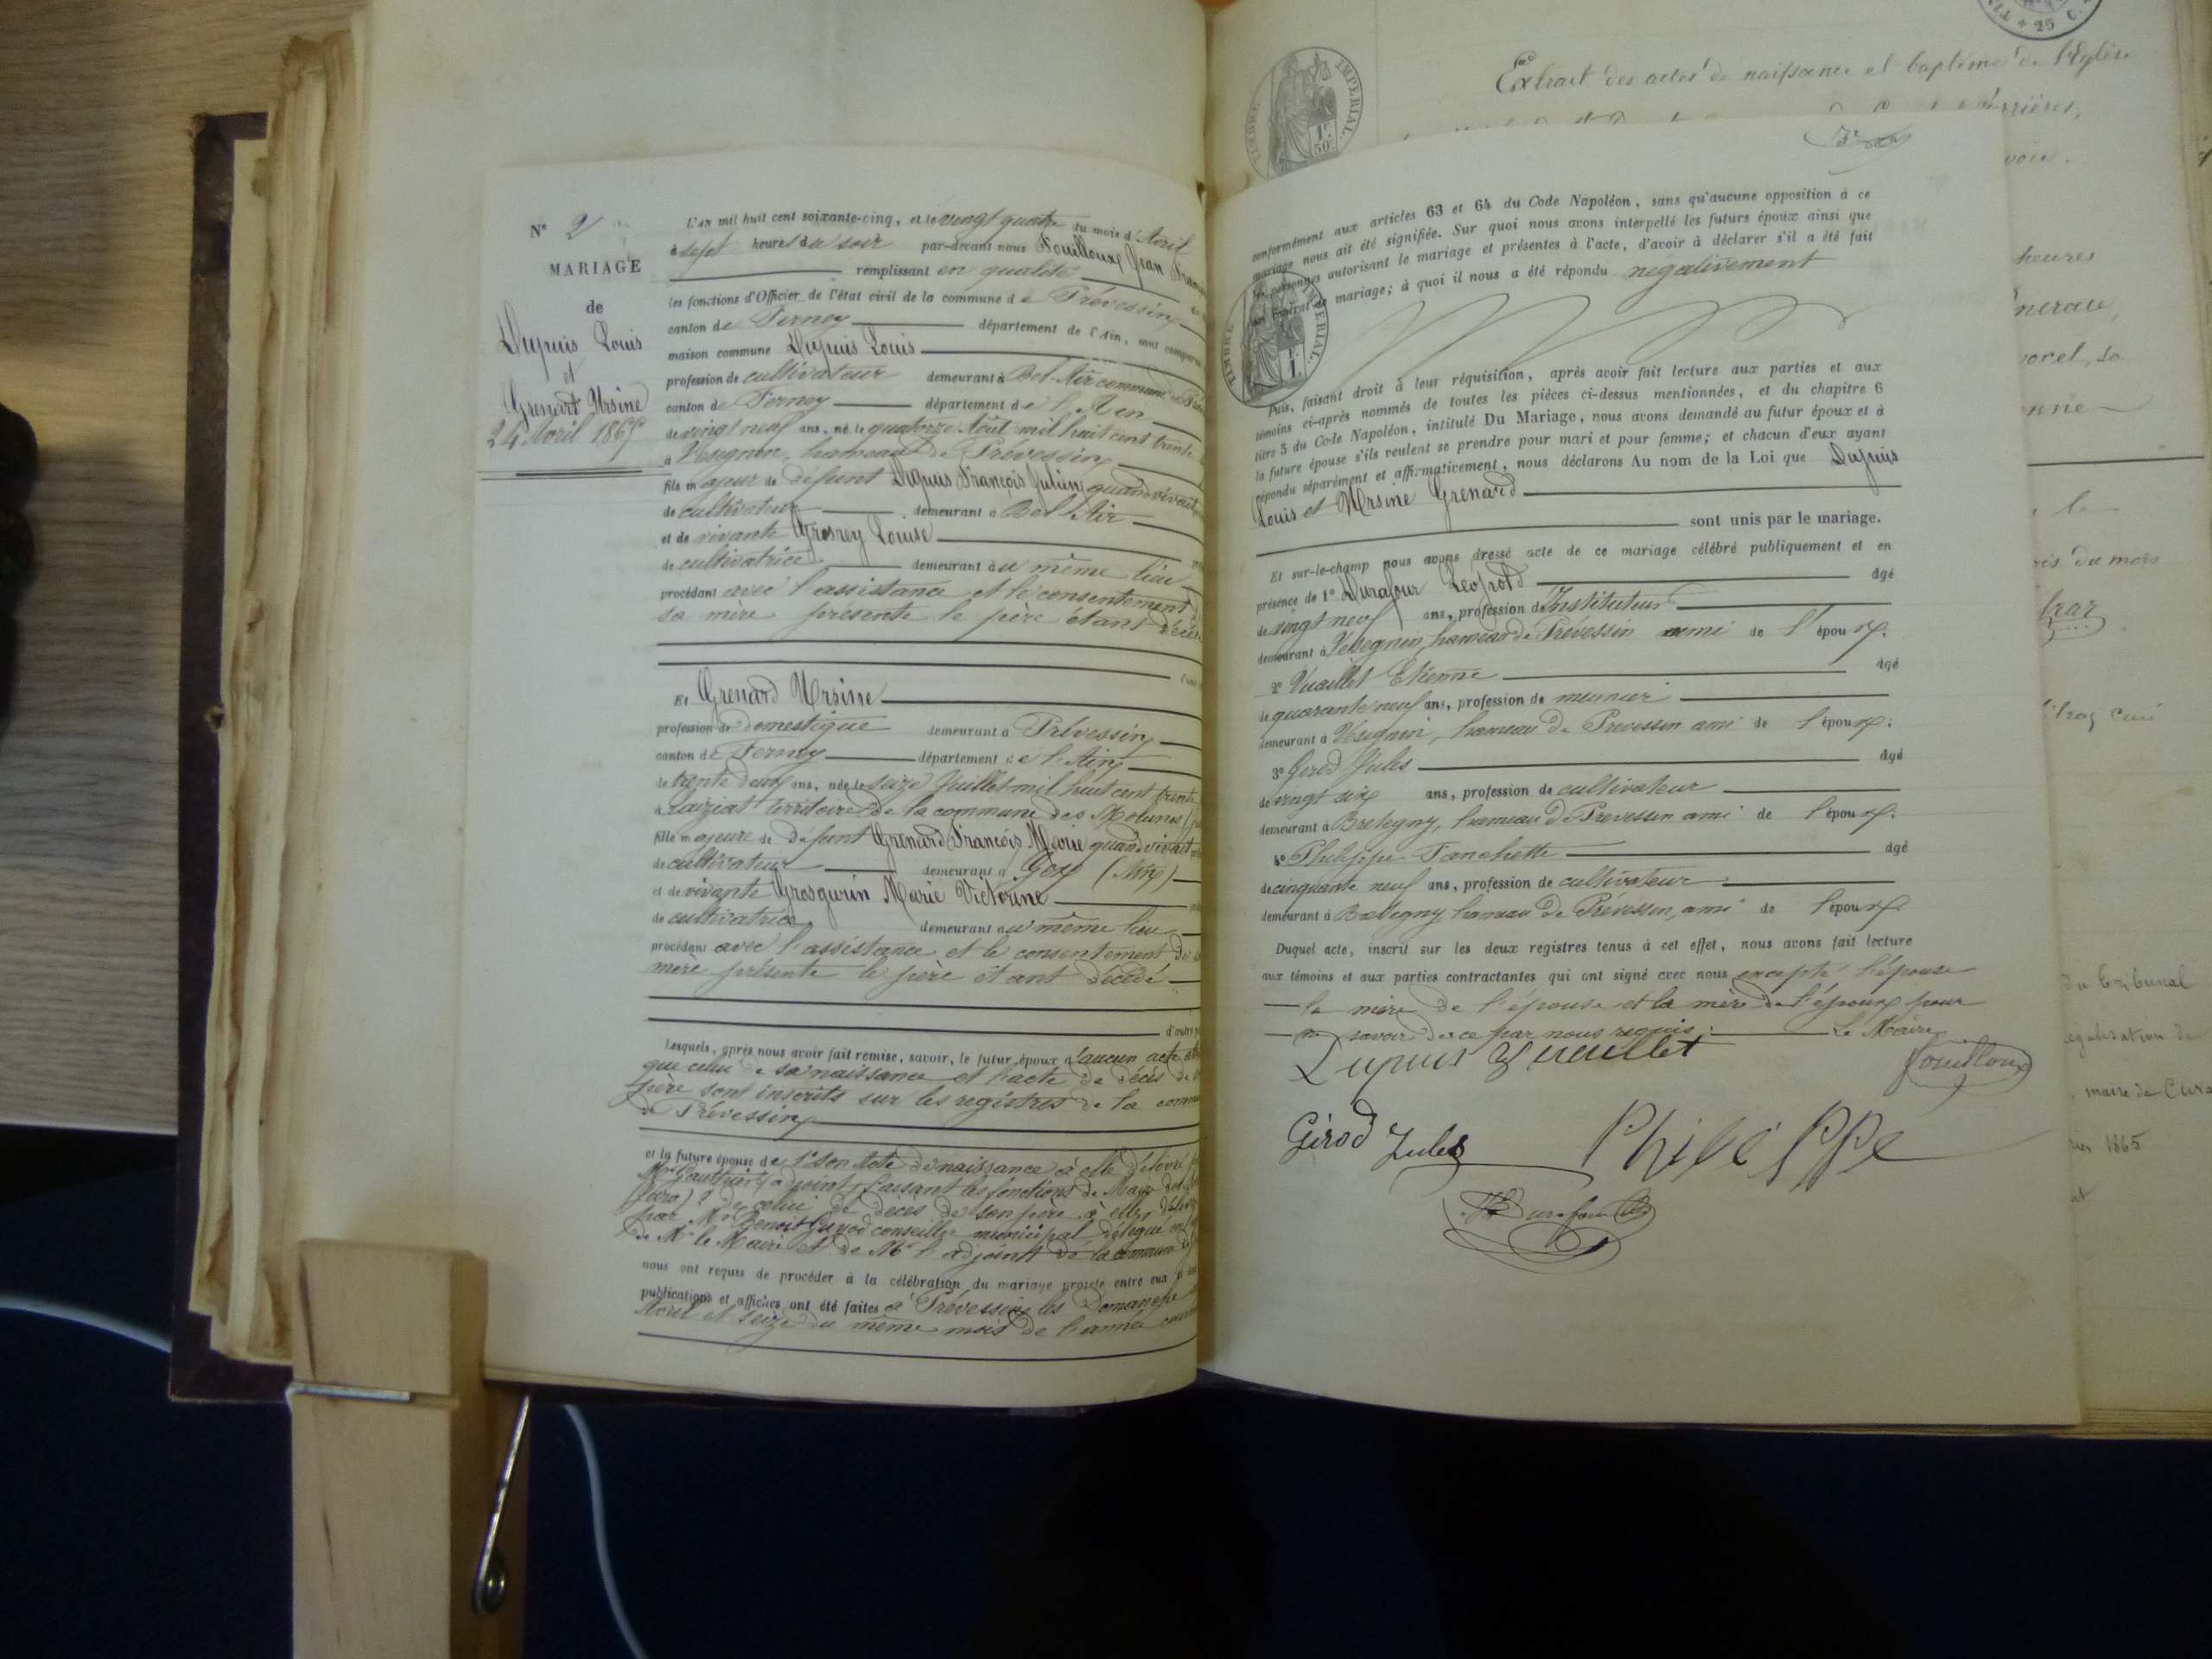 N° 2
MARIAGE
de
Dupuis Louis
et
Grenard Ursine
24 Avril 1865
L'AN mil huit cent soixante-cinq, et le vingt quatre du mois d'Avril
à sept heures du soir par-devant nous Fouilloux Jean
remplissant en qualité
les fonctions d'Officier de l'état civil de la commune de Prévessin
canton de Ferney département de l'Ain, sont
maison commune Dupuis Louis
profession de cultivateur demeurant à Bel-Air commune
canton de Ferney département de l'Ain
de vingt neuf ans, né le quatorze Août mil huit cent trente
à Vésegnin, hameau de Prévessin
fils majeur de défunt Dupuis François Julien quand vivait
de cultivateur demeurant à Bel Air
et de vivante Grosrey Louise
de cultivatrice demeurant au même lieu
procédant avec l'assistance et le consentement
sa mère présente le père étant
Et Grenard Ursine
profession de domestique demeurant à Prévessin
canton de Ferney département de l'Ain
de trente deux ans, née le seize Juillet mil huit cent trente
à territoire de la commune des Molunes
fille majeure de défunt Grenard François Marie quand vivait
de cultivateur demeurant à Gex (Ain)
et de vivante Grosgurin Marie Victorine
de cultivatrice demeurant au même lieu
procédant avec l'assistance et le consentement de
mère présente le père étant décédé
Lesquels, après nous avoir fait remise, savoir, le futur époux d'aucun acte
que celui de sa naissance et l'acte de décès de
père sont inscrits sur les registres de la
de Prévessin
et la future épouse de 1° son acte de naissance à elle délivré
Mr Gauthier adjoint faisant les fonctions de Maire
(Jura) 2° de celui de décès de son père à elle
par Mr Benoit conseiller municipal délégué
de Mr le Maire et de Mr l'adjoint de la commune
nous ont requis de procéder à la célébration du mariage projeté entre eux
publications et affiches ont été faites à Prévessin les Dimanche
Avril et seize du même mois de l'année
conformément aux articles 63 et 64 du Code Napoléon, sans qu'aucune opposition à ce
mariage nous ait été signifiée. Sur quoi nous avons interpellé les futurs époux ainsi que
les personnes autorisant le mariage et présentes à l'acte, d'avoir à déclarer s'il a été fait
un contrat de mariage; à quoi il nous a été répondu négativement
TIMBRE IMPÉRIAL
Puis, faisant droit à leur réquisition, après avoir fait lecture aux parties et aux
témoins ci-après nommés de toutes les pièces ci-dessus mentionnées, et du chapitre 6
titre 5 du Code Napoléon, intitulé Du Mariage, nous avons demandé au futur époux et à
la future épouse s'ils veulent se prendre pour mari et pour femme; et chacun d'eux ayant
répondu séparément et affirmativement, nous déclarons Au nom de la Loi que Dupuis
Louis et Ursine Grenard
sont unis par le mariage.
Et sur-le-champ nous avons dressé acte de ce mariage célébré publiquement et en
présence de 1° Durafour Léopold âgé
de vingt neuf ans, profession de Instituteur
demeurant à Vésegnin, hameau de Prévessin ami de l'époux.
2° Vuaillet Etienne âgé
de quarante neuf ans, profession de meunier
demeurant à Vésegnin, hameau de Prévessin ami de l'époux.
3° Girod Jules âgé
de vingt six ans, profession de cultivateur
demeurant à Bretegny, hameau de Prévessin ami de l'époux.
4° Philippe Fanchette âgé
de cinquante neuf ans, profession de cultivateur
demeurant à Bretegny hameau de Prévessin, ami de l'époux
Duquel acte, inscrit sur les deux registres tenus à cet effet, nous avons fait lecture
aux témoins et aux parties contractantes qui ont signé avec nous excepté l'épouse
la mère de l'épouse et la mère de l'époux pour
ne savoir de ce par nous requis. Le Maire
Dupuis Vuaillet
Fouilloux
Girod Jules Philippe
Durafour
Extrait des actes de naissance et baptême de l'Eglise
TIMBRE IMPÉRIAL
1F
50C
heures
le
du mois
du tribunal
maire de
1865